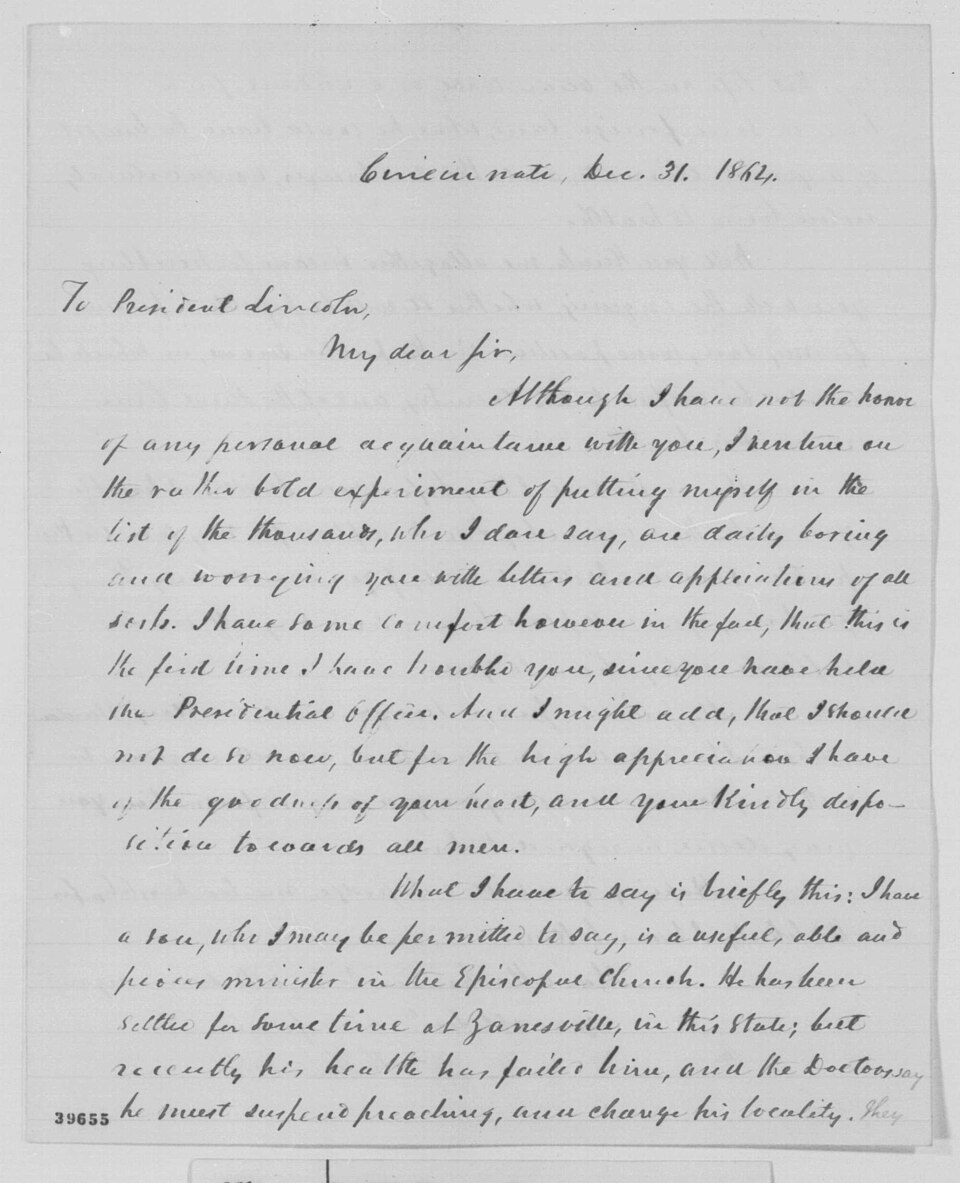 Cincinnati, Dec. 31. 1864.
To President Lincoln,
My dear Sir,
Although I have not the honor
of any personal acquaintance with you, I venture on
the rather bold experiment of putting myself in the
list of the thousands, who I dare say, are daily boring
and worrying you with letters and applications of all
sorts. I have some comfort however in the fact, that this is
the first time I have trouble you, since you have held
the Presidential Office. And I might add, that I should
not do so now, but for the high appreciation I have
of the goodness of your heart, and your Kindly dispo-
sition towards all men.
What I have to say is briefly this: I have
a son, who I may be permitted to say, is a useful, able and
pious minister in the Episcopal Church. He has been
settled for some time at Zanesville, in this State; but
recently his health has failed him, and the Doctors say
he must suspend preaching, and change his locality. They
39655